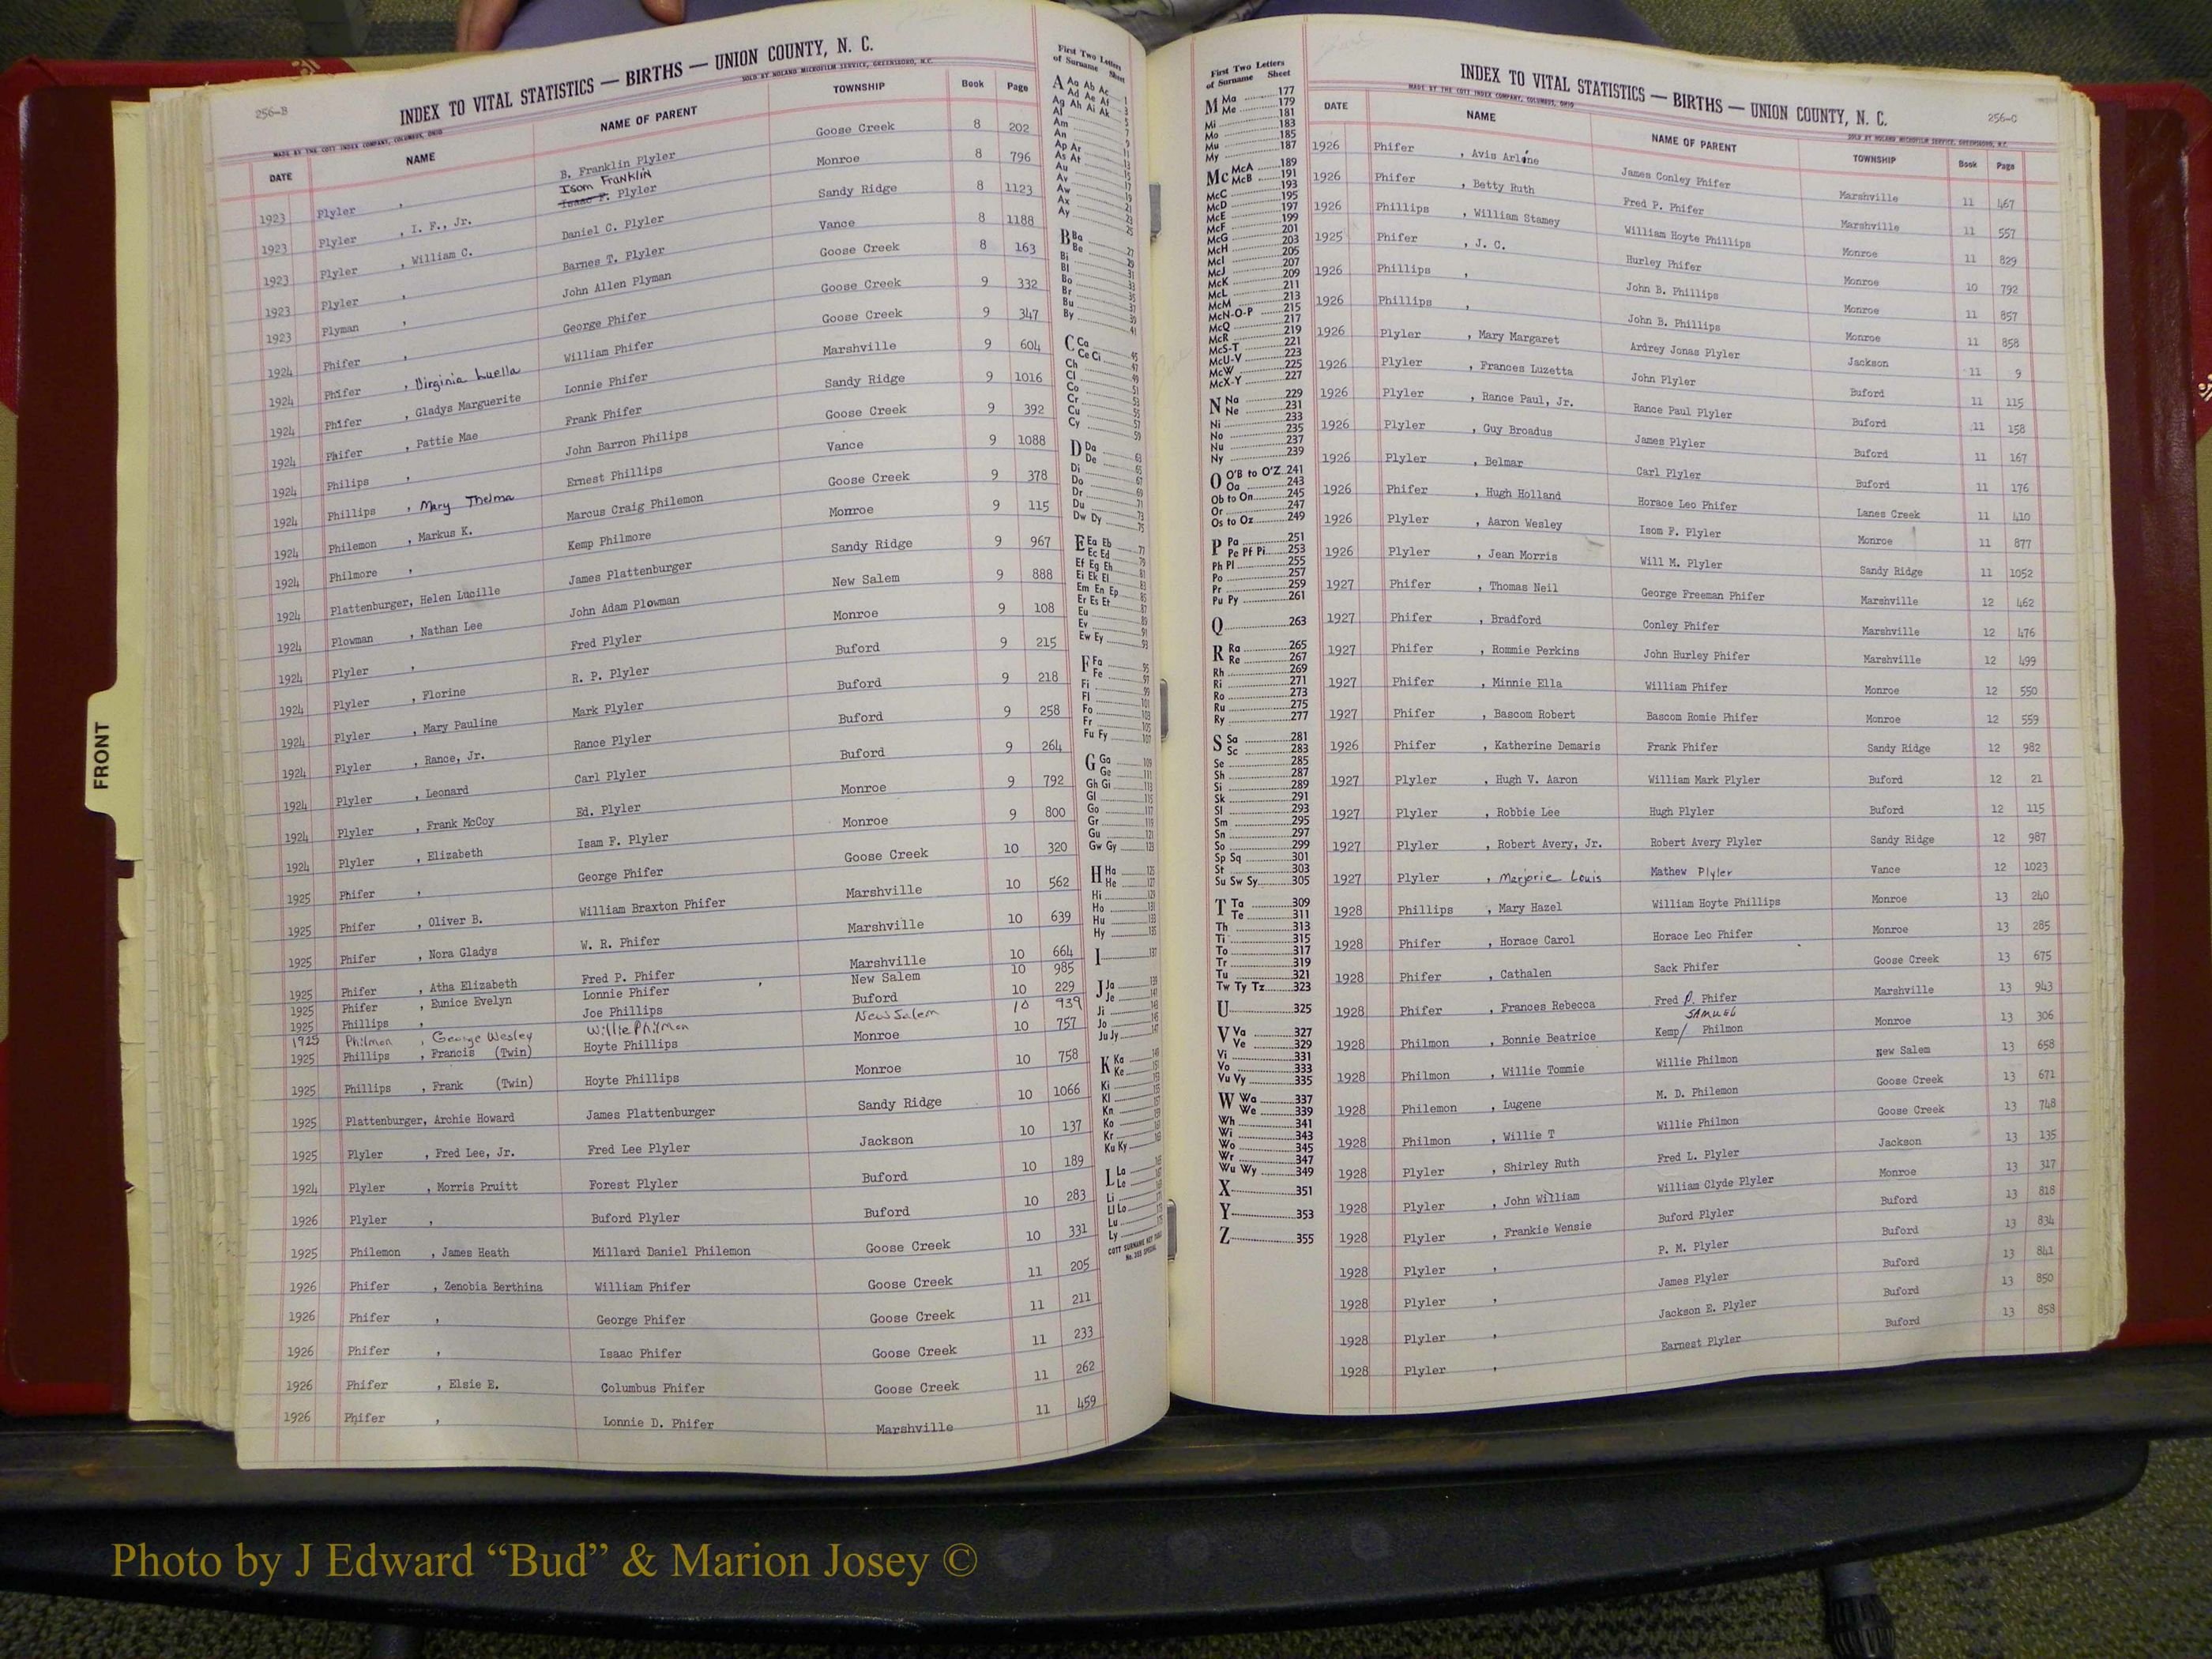 256-B
INDEX TO VITAL STATISTICS — BIRTHS — UNION COUNTY, N. C.
MADE BY THE COTT INDEX COMPANY, COLUMBUS, OHIO SOLD AT NOLAND MICROFILM SERVICE, GREENSBORO, N.C.
DATE NAME NAME OF PARENT TOWNSHIP Book Page
1923 Plyler , B. Franklin Plyler Goose Creek 8 202
Isom Franklin
1923 Plyler , I. F., Jr. Isaac F. Plyler Monroe 8 796
1923 Plyler , William C. Daniel C. Plyler Sandy Ridge 8 1123
1923 Plyler , Barnes T. Plyler Vance 8 1188
1923 Plyman , John Allen Plyman Goose Creek 8 163
1924 Phifer , George Phifer Goose Creek 9 332
1924 Phifer , Virginia Luella William Phifer Goose Creek 9 347
1924 Phifer , Gladys Marguerite Lonnie Phifer Marshville 9 604
1924 Phifer , Pattie Mae Frank Phifer Sandy Ridge 9 1016
1924 Philips , John Barron Philips Goose Creek 9 392
1924 Phillips , Mary Thelma Ernest Phillips Vance 9 1088
1924 Philemon , Markus K. Marcus Craig Philemon Goose Creek 9 378
1924 Philmore , Kemp Philmore Monroe 9 115
1924 Plattenburger, Helen Lucille James Plattenburger Sandy Ridge 9 967
1924 Plowman , Nathan Lee John Adam Plowman New Salem 9 888
1924 Plyler , Fred Plyler Monroe 9 108
1924 Plyler , Florine R. P. Plyler Buford 9 215
1924 Plyler , Mary Pauline Mark Plyler Buford 9 218
1924 Plyler , Rance, Jr. Rance Plyler Buford 9 258
1924 Plyler , Leonard Carl Plyler Buford 9 264
1924 Plyler , Frank McCoy Ed. Plyler Monroe 9 792
1924 Plyler , Elizabeth Isam F. Plyler Monroe 9 800
1925 Phifer , George Phifer Goose Creek 10 320
1925 Phifer , Oliver B. William Braxton Phifer Marshville 10 562
1925 Phifer , Nora Gladys W. R. Phifer Marshville 10 639
1925 Phifer , Atha Elizabeth Fred P. Phifer Marshville 10 664
1925 Phifer , Eunice Evelyn Lonnie Phifer New Salem 10 985
1925 Phillips , Joe Phillips Buford 10 229
1925 Philmon , George Wesley Willie Philmon New Salem 10 939
1925 Phillips , Francis (Twin) Hoyte Phillips Monroe 10 757
1925 Phillips , Frank (Twin) Hoyte Phillips Monroe 10 758
1925 Plattenburger, Archie Howard James Plattenburger Sandy Ridge 10 1066
1925 Plyler , Fred Lee, Jr. Fred Lee Plyler Jackson 10 137
1924 Plyler , Morris Pruitt Forest Plyler Buford 10 189
1926 Plyler , Buford Plyler Buford 10 283
1925 Philemon , James Heath Millard Daniel Philemon Goose Creek 10 331
1926 Phifer , Zenobia Berthina William Phifer Goose Creek 11 205
1926 Phifer , George Phifer Goose Creek 11 211
1926 Phifer , Isaac Phifer Goose Creek 11 233
1926 Phifer , Elsie E. Columbus Phifer Goose Creek 11 262
1926 Phifer , Lonnie D. Phifer Marshville 11 459
FRONT
First Two Letters
of Surname Sheet
A Aa Ab Ac
Ad Ae Af
Ag Ah Ai Ak
Al
Am
An
Ap Ar
As At
Au
Av
Aw
Ax
Ay
B Ba 27
Be 29
Bi 31
Bl 33
Bo 35
Br 37
Bu 39
By 41
C Ca 45
Ce Ci 47
Ch 49
Cl 51
Co 53
Cr 55
Cu 57
Cy 59
D Da 63
De 65
Di 67
Do 69
Dr 71
Du 73
Dw Dy 75
E Ea Eb 77
Ec Ed 79
Ef Eg Eh 81
Ei Ek El 83
Em En Ep 85
Er Es Et 87
Eu 89
Ev 91
Ew Ey 93
F Fa 95
Fe 97
Fi 99
Fl 101
Fo 103
Fr 105
Fu Fy 107
G Ga 109
Ge 111
Gh Gi 113
Gl 115
Go 117
Gr 119
Gu 121
Gw Gy 123
H Ha 125
He 127
Hi 129
Ho 131
Hu 133
Hy 135
I 137
J Ja 139
Je 141
Ji 143
Jo 145
Ju Jy 147
K Ka
Ke
Ki
Kl
Kn
Ko
Kr
Ku Ky
L La
Le
Li
Ll Lo
Lu
Ly
COTT SURNAME KEY TABLE
First Two Letters
of Surname Sheet
M Ma 177
Me 179
Mi 181
Mo 183
Mu 185
My 187
Mc McA 189
McB 191
McC 193
McD 195
McE 197
McF 199
McG 201
McH 203
McI 205
McJ 207
McK 209
McL 211
McM 213
McN-O-P 215
McQ 217
McR 219
McS-T 221
McU-V 223
McW 225
McX-Y 227
N Na 229
Ne 231
Ni 233
No 235
Nu 237
Ny 239
O O'B to O'Z 241
Oa 243
Ob to On 245
Or 247
Os to Oz 249
P Pa 251
Pe Pf Pi 253
Ph Pl 255
Po 257
Pr 259
Pu Py 261
Q 263
R Ra 265
Re 267
Rh 269
Ri 271
Ro 273
Ru 275
Ry 277
S Sa 281
Sc 283
Se 285
Sh 287
Si 289
Sk 291
Sl 293
Sm 295
Sn 297
So 299
Sp Sq 301
St 303
Su Sw Sy 305
T Ta 309
Te 311
Th 313
Ti 315
To 317
Tr 319
Tu 321
Tw Ty Tz 323
U 325
V Va 327
Ve 329
Vi 331
Vo 333
Vu Vy 335
W Wa 337
We 339
Wh 341
Wi 343
Wo 345
Wr 347
Wu Wy 349
X 351
Y 353
Z 355
INDEX TO VITAL STATISTICS — BIRTHS — UNION COUNTY, N. C.
256-C
MADE BY THE COTT INDEX COMPANY, COLUMBUS, OHIO SOLD AT NOLAND MICROFILM SERVICE, GREENSBORO, N.C.
DATE NAME NAME OF PARENT TOWNSHIP Book Page
1926 Phifer , Avis Arline James Conley Phifer Marshville 11 467
1926 Phifer , Betty Ruth Fred P. Phifer Marshville 11 557
1926 Phillips , William Stamey William Hoyte Phillips Monroe 11 829
1925 Phifer , J. C. Hurley Phifer Monroe 10 792
1926 Phillips , John B. Phillips Monroe 11 857
1926 Phillips , John B. Phillips Monroe 11 858
1926 Plyler , Mary Margaret Ardrey Jonas Plyler Jackson 11 9
1926 Plyler , Frances Luzetta John Plyler Buford 11 115
1926 Plyler , Rance Paul, Jr. Rance Paul Plyler Buford 11 158
1926 Plyler , Guy Broadus James Plyler Buford 11 167
1926 Plyler , Belmar Carl Plyler Buford 11 176
1926 Phifer , Hugh Holland Horace Leo Phifer Lanes Creek 11 410
1926 Plyler , Aaron Wesley Isom F. Plyler Monroe 11 877
1926 Plyler , Jean Morris Will M. Plyler Sandy Ridge 11 1052
1927 Phifer , Thomas Neil George Freeman Phifer Marshville 12 462
1927 Phifer , Bradford Conley Phifer Marshville 12 476
1927 Phifer , Rommie Perkins John Hurley Phifer Marshville 12 499
1927 Phifer , Minnie Ella William Phifer Monroe 12 550
1927 Phifer , Bascom Robert Bascom Romie Phifer Monroe 12 559
1926 Phifer , Katherine Demaris Frank Phifer Sandy Ridge 12 982
1927 Plyler , Hugh V. Aaron William Mark Plyler Buford 12 21
1927 Plyler , Robbie Lee Hugh Plyler Buford 12 115
1927 Plyler , Robert Avery, Jr. Robert Avery Plyler Sandy Ridge 12 987
1927 Plyler , Marjorie Louis Mathew Plyler Vance 12 1023
1928 Phillips , Mary Hazel William Hoyte Phillips Monroe 13 240
1928 Phifer , Horace Carol Horace Leo Phifer Monroe 13 285
1928 Phifer , Cathalen Sack Phifer Goose Creek 13 675
1928 Phifer , Frances Rebecca Fred P. Phifer Marshville 13 943
SAMUEL
1928 Philmon , Bonnie Beatrice Kemp/ Philmon Monroe 13 306
1928 Philmon , Willie Tommie Willie Philmon New Salem 13 658
1928 Philemon , Lugene M. D. Philemon Goose Creek 13 671
1928 Philmon , Willie T Willie Philmon Goose Creek 13 748
1928 Plyler , Shirley Ruth Fred L. Plyler Jackson 13 135
1928 Plyler , John William William Clyde Plyler Monroe 13 317
1928 Plyler , Frankie Wensie Buford Plyler Buford 13 818
1928 Plyler , P. M. Plyler Buford 13 834
1928 Plyler , James Plyler Buford 13 841
1928 Plyler , Jackson E. Plyler Buford 13 850
1928 Plyler , Earnest Plyler Buford 13 858
Photo by J Edward “Bud” & Marion Josey ©